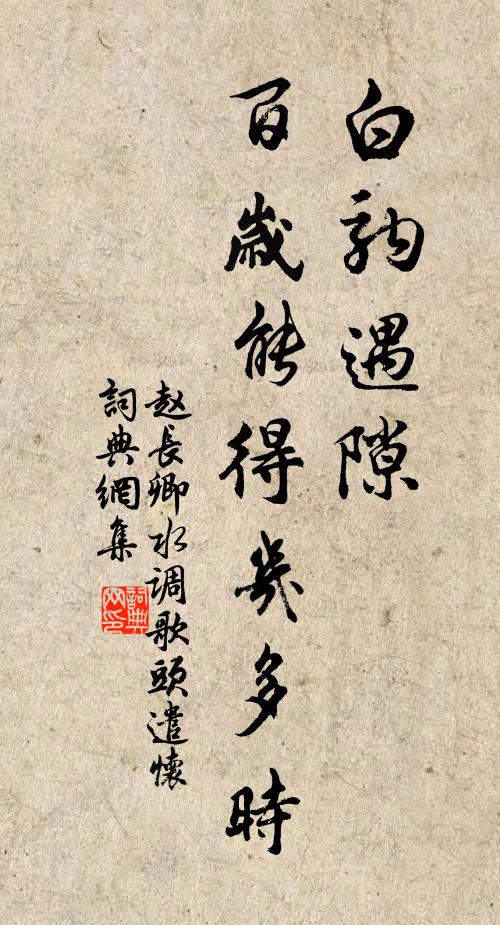 白駒遇隙
百歲能得幾多時
赵長卿水调歌頭遣懷
詞典網集
詞典
网印